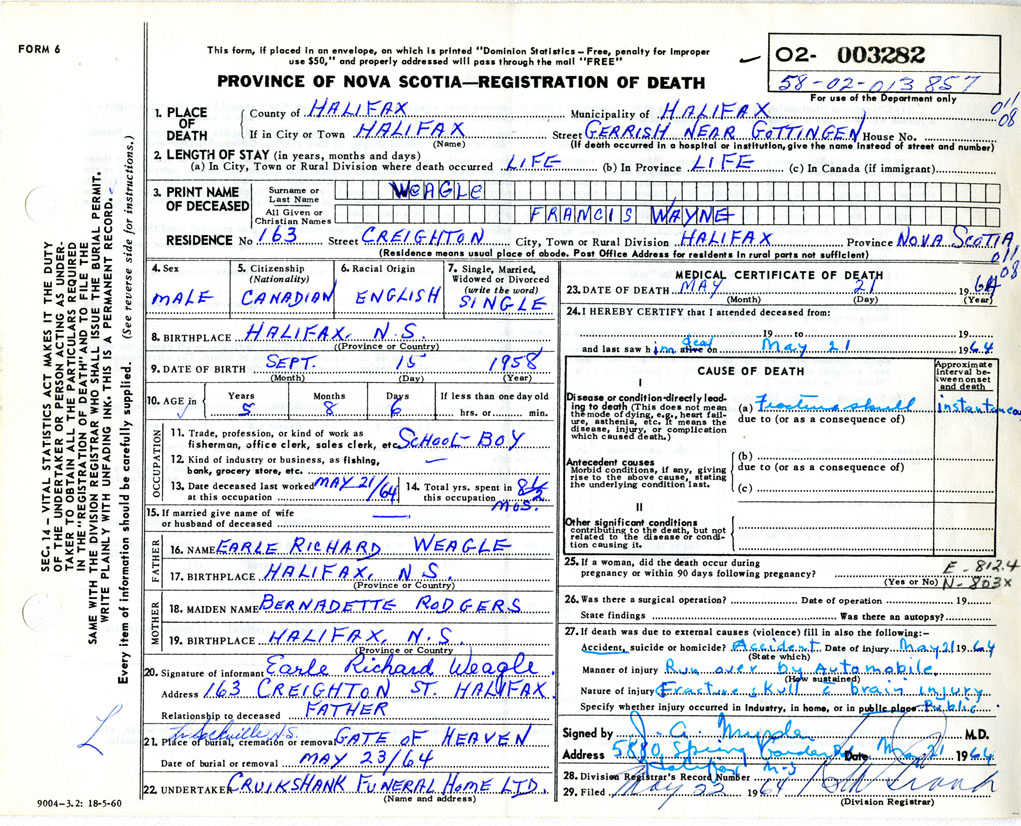 FORM 6
This form, if placed in an envelope, on which is printed "Dominion Statistics – Free, penalty for improper
use $50," and properly addressed will pass through the mail "FREE"
PROVINCE OF NOVA SCOTIA—REGISTRATION OF DEATH
02- 003282
58-02-013857
For use of the Department only
011
08
1. PLACE OF DEATH
County of HALIFAX Municipality of HALIFAX
If in City or Town HALIFAX Street GERRISH NEAR GOTTINGEN House No.
(Name) (If death occurred in a hospital or institution, give the name instead of street and number)
2. LENGTH OF STAY (in years, months and days)
(a) In City, Town or Rural Division where death occurred LIFE (b) In Province LIFE (c) In Canada (if immigrant)
3. PRINT NAME OF DECEASED
Surname or Last Name WEAGLE
All Given or Christian Names FRANCIS WAYNE
RESIDENCE No 163 Street CREIGHTON City, Town or Rural Division HALIFAX Province NOVA SCOTIA
(Residence means usual place of abode. Post Office Address for residents in rural parts not sufficient)
011
08
4. Sex MALE
5. Citizenship (Nationality) CANADIAN
6. Racial Origin ENGLISH
7. Single, Married, Widowed or Divorced (write the word) SINGLE
8. BIRTHPLACE HALIFAX, N.S.
((Province or Country)
9. DATE OF BIRTH SEPT. 15 1958
(Month) (Day) (Year)
10. AGE in Years Months Days If less than one day old
5 8 6 hrs. or min.
OCCUPATION
11. Trade, profession, or kind of work as
fisherman, office clerk, sales clerk, etc. SCHOOL-BOY
12. Kind of industry or business, as fishing,
bank, grocery store, etc.
13. Date deceased last worked at this occupation MAY 21/64
14. Total yrs. spent in this occupation 8½ MOS.
15. If married give name of wife
or husband of deceased
FATHER
16. NAME EARLE RICHARD WEAGLE
17. BIRTHPLACE HALIFAX, N.S.
(Province or Country)
MOTHER
18. MAIDEN NAME BERNADETTE RODGERS
19. BIRTHPLACE HALIFAX, N.S.
(Province or Country)
20. Signature of informant Earle Richard Weagle
Address 163 CREIGHTON ST. HALIFAX
Relationship to deceased FATHER
In Sackville N.S.
21. Place of burial, cremation or removal GATE OF HEAVEN
Date of burial or removal MAY 23/64
22. UNDERTAKER CRUIKSHANK FUNERAL HOME LTD.
(Name and address)
MEDICAL CERTIFICATE OF DEATH
23. DATE OF DEATH MAY 21 1964
(Month) (Day) (Year)
24. I HEREBY CERTIFY that I attended deceased from:
19 to 19
dead
and last saw him alive on May 21 1964
CAUSE OF DEATH
Approximate interval between onset and death
I
Disease or condition directly leading to death (This does not mean the mode of dying, e.g., heart failure, asthenia, etc. It means the disease, injury, or complication which caused death.)
(a) Fracture skull instantaneo
due to (or as a consequence of)
Antecedent causes
Morbid conditions, if any, giving rise to the above cause, stating the underlying condition last.
(b)
due to (or as a consequence of)
(c)
II
Other significant conditions
contributing to the death, but not related to the disease or condition causing it.
25. If a woman, did the death occur during
pregnancy or within 90 days following pregnancy?
(Yes or No)
E-812.4
N-803x
26. Was there a surgical operation? Date of operation 19
State findings Was there an autopsy?
27. If death was due to external causes (violence) fill in also the following:–
Accident, suicide or homicide? Accident Date of injury May 21 1964
(State which)
Manner of injury Run over by Automobile
(How sustained)
Nature of injury Fracture skull c brain injury
Specify whether injury occurred in industry, in home, or in public place Public
Signed by J. A. M.D.
Address 5880 Spring Garden Rd Date May 21 1964
Halifax N-S
28. Division Registrar's Record Number
29. Filed May 22 1964
(Division Registrar)
SEC. 14 – VITAL STATISTICS ACT MAKES IT THE DUTY
OF THE UNDERTAKER OR PERSON ACTING AS UNDER-
TAKER TO OBTAIN ALL THE PARTICULARS REQUIRED
IN THE "REGISTRATION OF DEATH" AND TO FILE THE
SAME WITH THE DIVISION REGISTRAR WHO SHALL ISSUE THE BURIAL PERMIT.
WRITE PLAINLY WITH UNFADING INK. THIS IS A PERMANENT RECORD.
Every item of information should be carefully supplied. (See reverse side for instructions.)
L
9004-3.2: 18-5-60